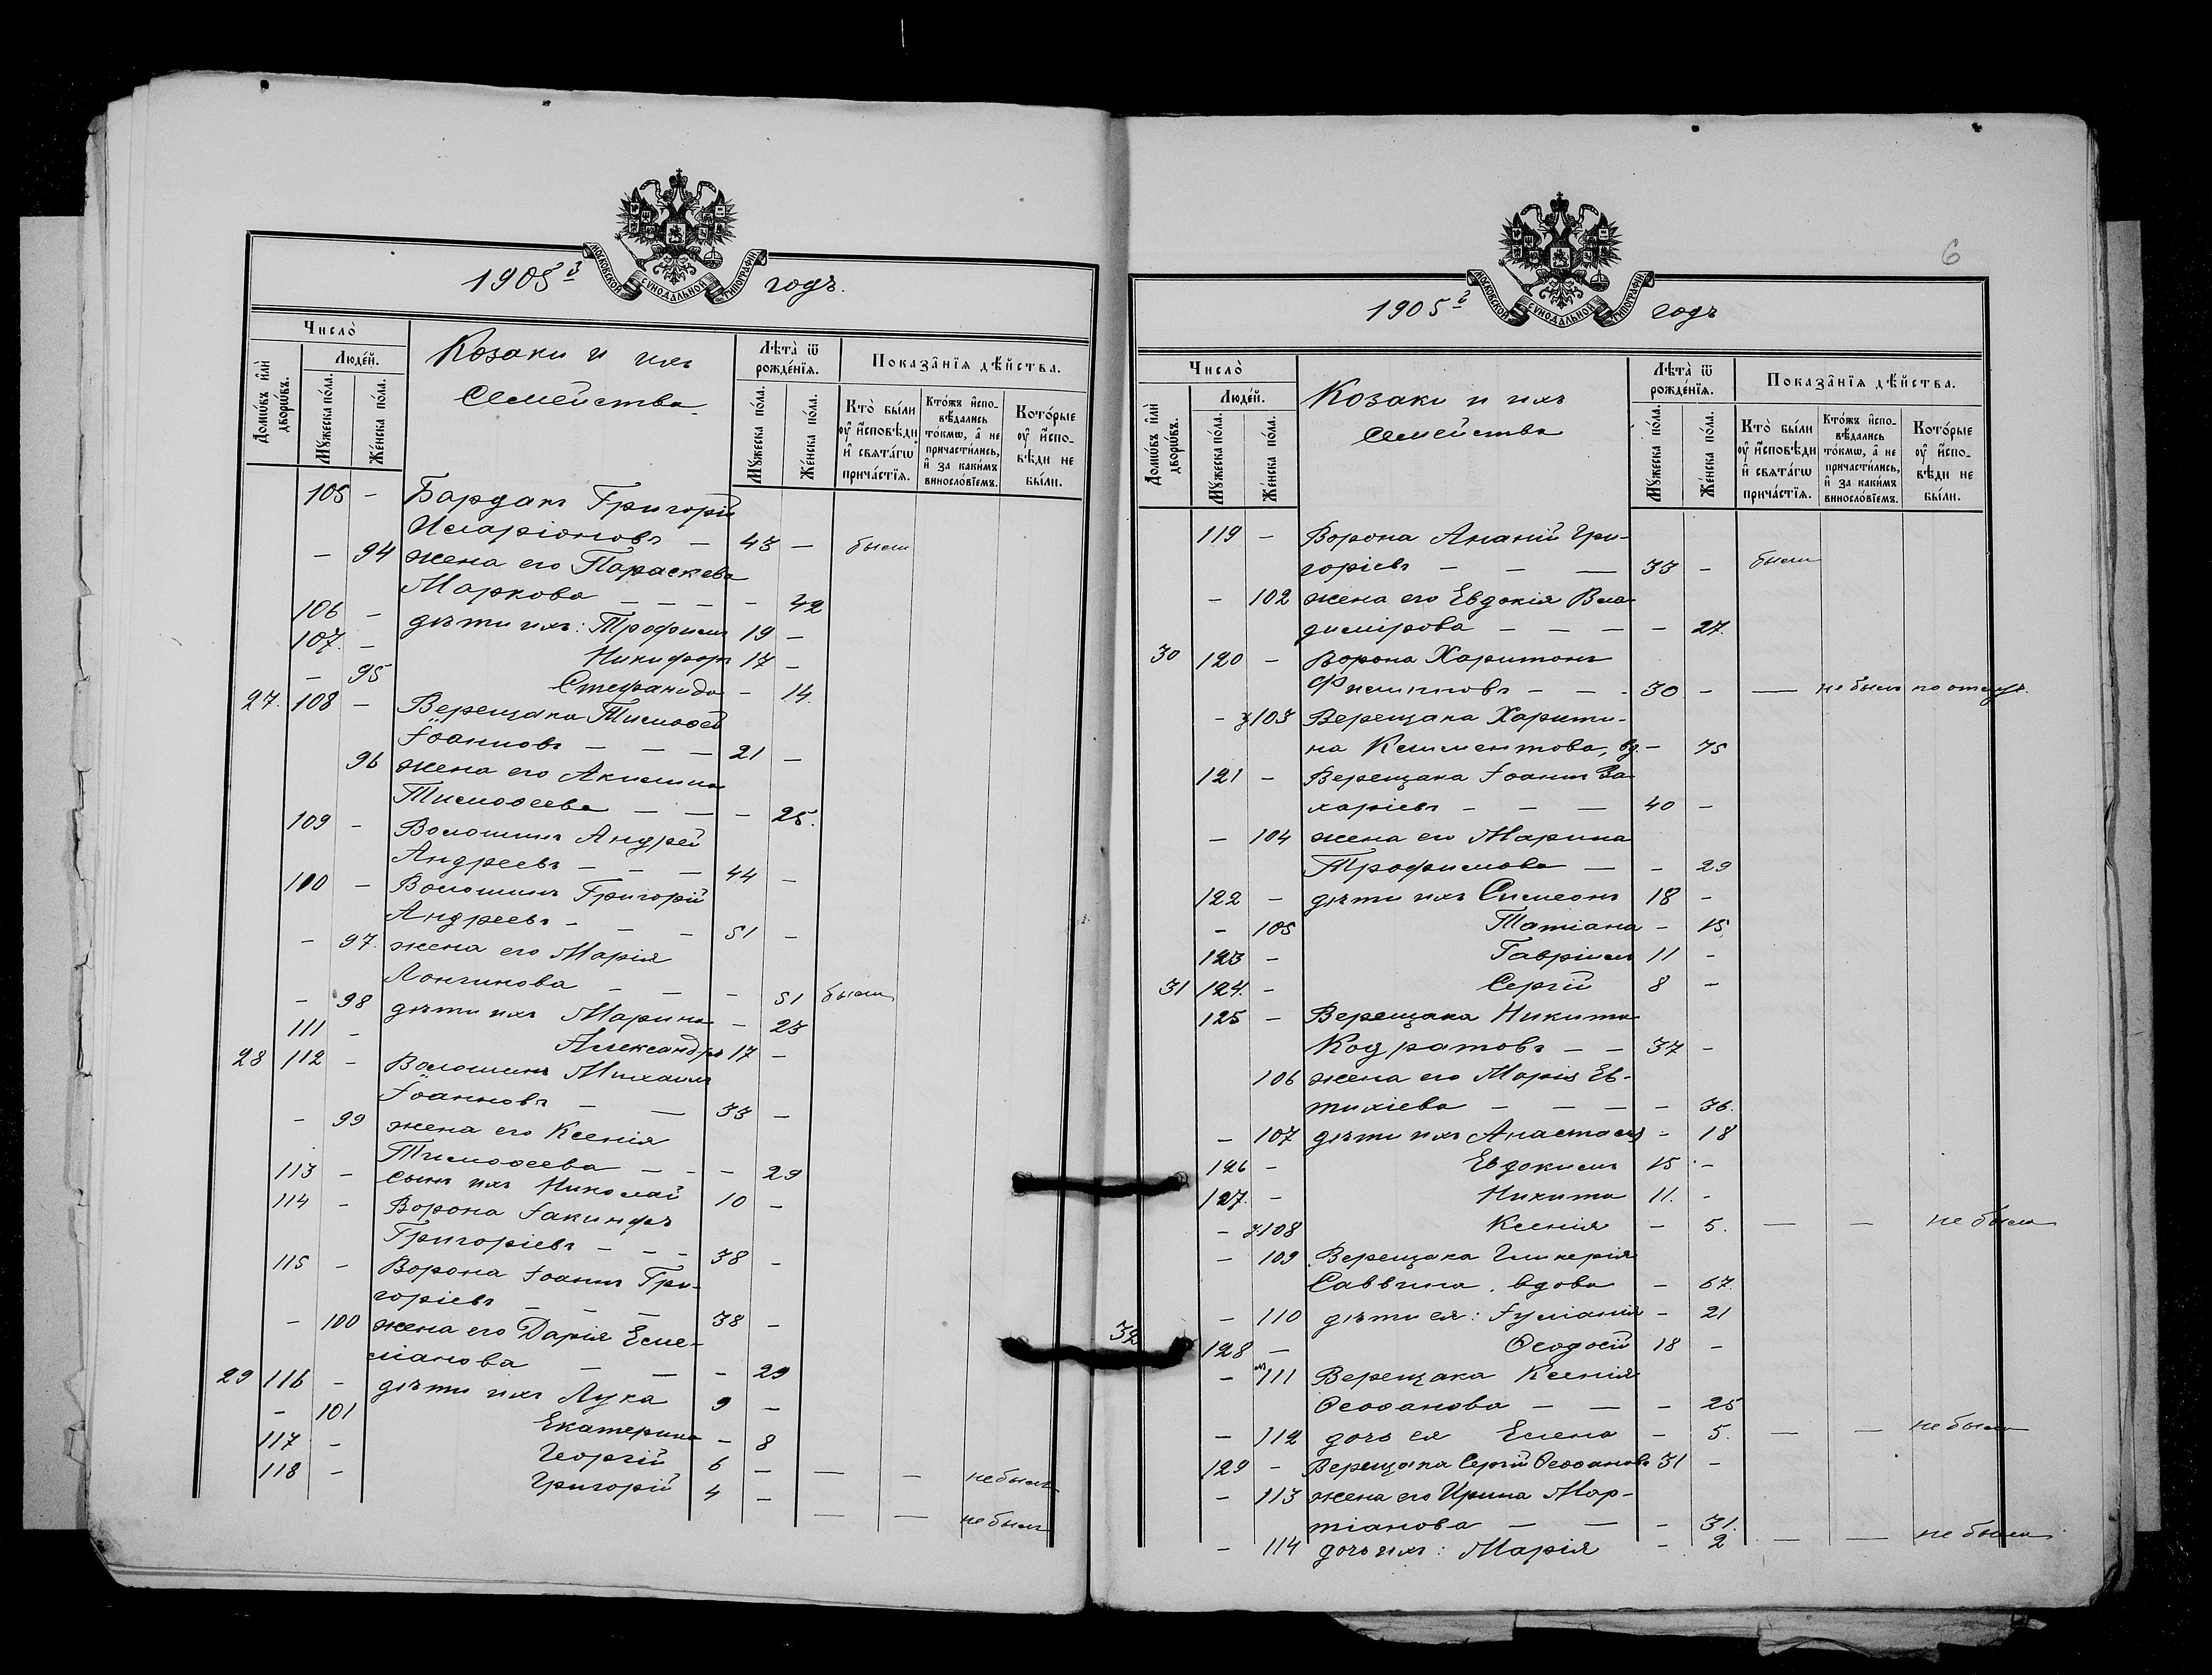 МОСКОВСКОЙ СѴНОДАЛЬНОЙ ТИПОГРАФІИ
1905й годъ.
Число̀
Домѡ́въ и҆лѝ дворѡ́въ.
Люде́й.
Мꙋ́жеска по́ла.
Же́нска по́ла.
Козаки и ихъ
Семейства
Лѣта̀ ѿ рожде́нїѧ.
Мꙋ́жеска по́ла.
Же́нска по́ла.
Показа̑нїѧ дѣ́йства.
Кто̀ бы́ли оу҆ и҆сповѣ́ди и҆ свѧта́гѡ прича́стїѧ.
Кто́жъ и҆спо-вѣ́дались то́кмѡ, а҆ не причасти́лись, и҆ за каки́мъ винослові́емъ.
Кото́рые оу҆ и҆спо-вѣ́ди не бы́ли.
105 - Бардакъ Григорій
Иларіоновъ — 43 — были
— 94 жена его Параскева
Маркова — — — — 42
106 - дѣти ихъ: Трофимъ 19 —
107. - Никифоръ 17 —
— 95 Стефанида — 14.
27. 108 — Верещака Тимоѳей
Іоанновъ — — — 21 —
96 жена его Акилина
Тимоѳеева — — — 25.
109 - Волошинъ Андрей
Андреевъ — — — 44 —
110 — Волошинъ Григорій
Андреевъ — — — 51 —
— 97. жена его Марія
Лонгинова — — — 51 были
— 98 дѣти ихъ Марина — 23
111 - Александръ 17 —
28 112 - Волошинъ Михаилъ
Іоанновъ — — 33 —
— 99 жена его Ксенія
Тимоѳеева — — — 29
113 - сынъ ихъ Николай 10 —
114 - Ворона Іакинфъ
Григоріевъ — — — 38 —
115 - Ворона Іоаннъ Гри-
горіевъ — — — 38 —
— 100 жена его Дарія Еме-
ліанова — — — 29
29 116 - дѣти ихъ Лука 9 —
— 101 Екатерина — 8
117 - Георгій 6 — — — не былъ
118 - Григорій 4 — — — не былъ
6
МОСКОВСКОЙ СѴНОДАЛЬНОЙ ТИПОГРАФІИ
1905й годъ
Число̀
Домѡ́въ и҆лѝ дворѡ́въ.
Люде́й.
Мꙋ́жеска по́ла.
Же́нска по́ла.
Козаки и ихъ
семейства
Лѣта̀ ѿ рожде́нїѧ.
Мꙋ́жеска по́ла.
Же́нска по́ла.
Показа̑нїѧ дѣ́йства.
Кто̀ бы́ли оу҆ и҆сповѣ́ди и҆ свѧта́гѡ прича́стїѧ.
Кто́жъ и҆спо-вѣ́дались то́кмѡ, а҆ не причасти́лись, и҆ за каки́мъ винослові́емъ.
Кото́рые оу҆ и҆спо-вѣ́ди не бы́ли.
119 - Ворона Ананій Гри-
горіевъ — — — 33 — были
— 102 жена его Евдокія Вла-
димірова — — — — 27.
30 120 - Ворона Харитонъ
Филипповъ — — — 30 — — не былъ по отлуч.
— 103 Верещака Харити-
на Климентова, вд. — 75
121 - Верещака Іоаннъ За-
харіевъ — — — 40 —
— 104 жена его Марина
Трофимова — — 29
122 - дѣти ихъ Симеонъ 18 —
— 105 Татіана — 15.
123 - Гавріилъ 11 —
31 124. - Сергій 8 —
125 - Верещака Никита
Кодратовъ — — 37 —
106 жена его Марія Ев-
тихіева — — — — 36.
— 107 дѣти ихъ Анастасія — 18
126 - Евдокимъ 15 —
127. - Никита 11. —
— 108 Ксенія — 5. — — не была
— 109 Верещака Гликерія
Саввина, вдова — 67.
— 110 дѣти ея: Іуліанія — 21
32 128 — Ѳеодосій 18 —
— 111 Верещака Ксенія
Ѳеофанова — — — 25
— 112 дочь ея Елена — 5. — — не была
129 - Верещака Сергій Ѳеофановъ 31 —
— 113 жена его Ирина Мар-
тіанова — — — 31.
— 114 дочь ихъ: Марія — 2 — — не была